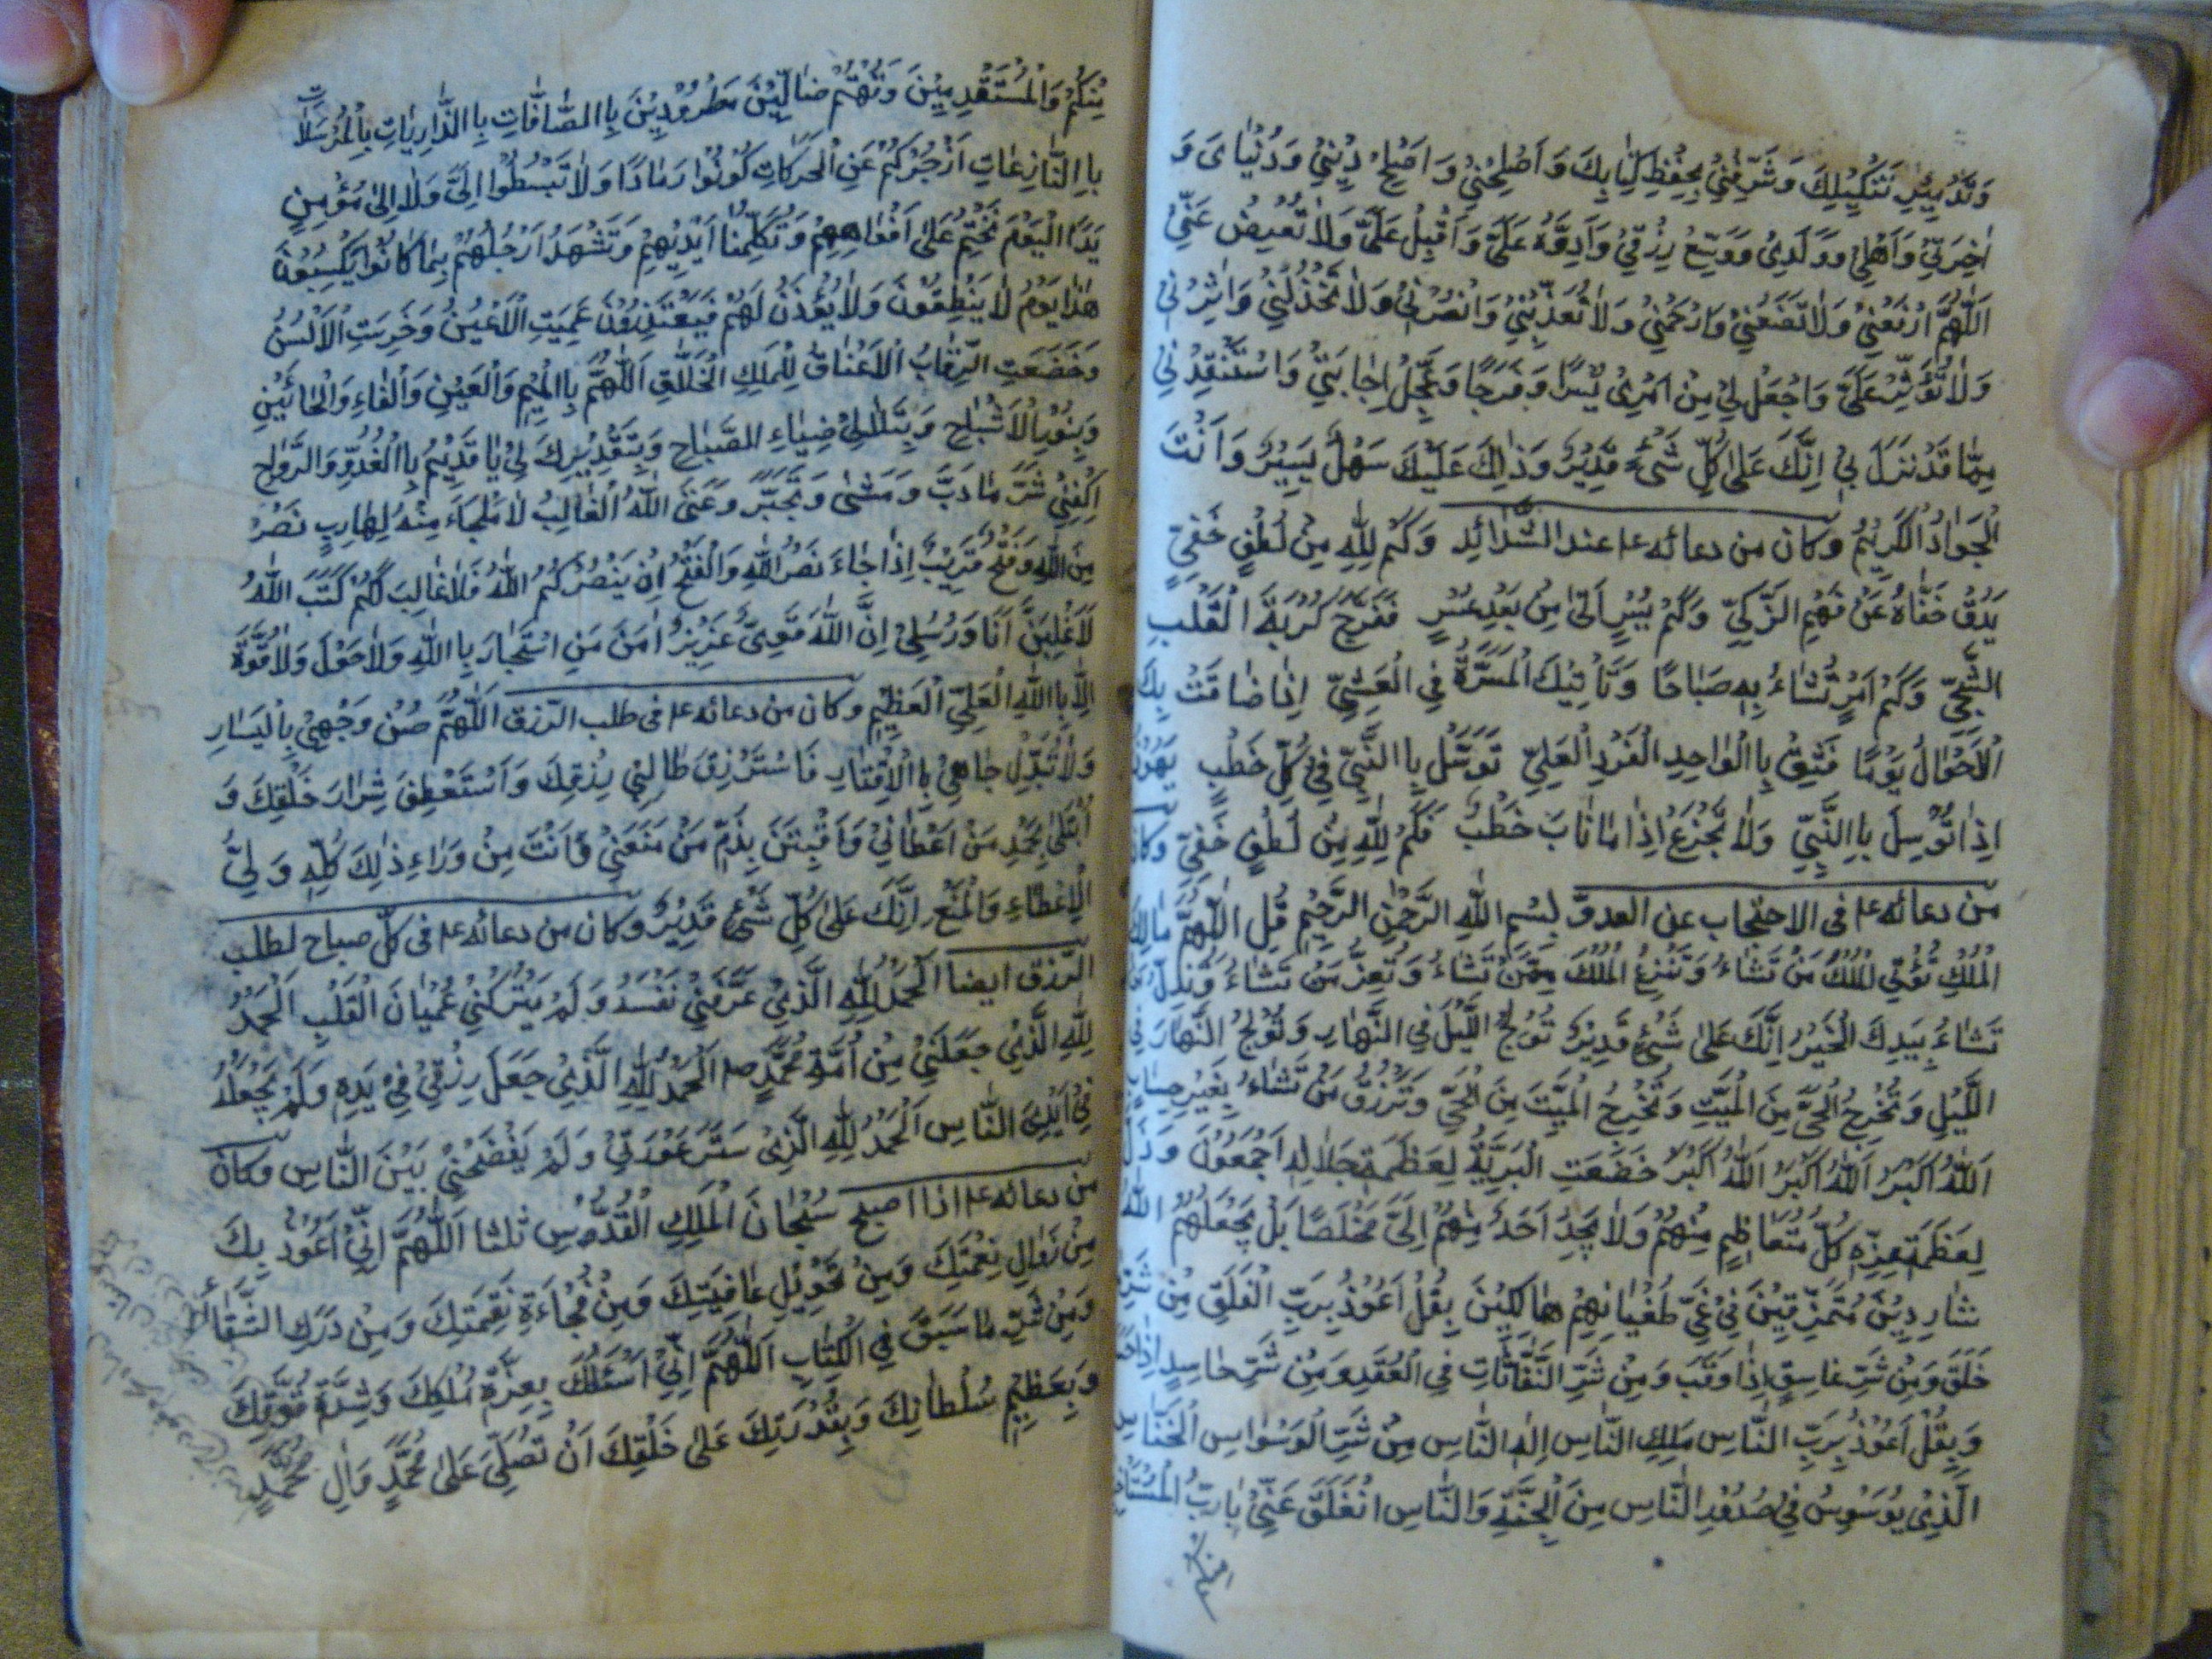 وَتَدْبِيرِ تَنْكِيلِكَ وَشَرِّفْنِي بِحِفْظِ كِتَابِكَ وَاَصْلِحْنِي وَاَصْلِحْ دِيْنِيْ وَدُنْيَاىَ وَ
اٰخِرَتِيْ وَاَهْلِيْ وَوَلَدِيْ وَوَسِّعْ رِزْقِيْ وَاَدِرَّهُ عَلَيَّ وَاَقْبِلْ عَلَيَّ وَلَا تُعْرِضْ عَنِّيْ
اَللّٰهُمَّ ارْفَعْنِيْ وَلَا تَضَعْنِيْ وَارْحَمْنِيْ وَلَا تُعَذِّبْنِيْ وَانْصُرْنِيْ وَلَا تَخْذُلْنِيْ وَاٰثِرْنِيْ
وَلَا تُؤْثِرْ عَلَيَّ وَاجْعَلْ لِيْ مِنْ اَمْرِيْ يُسْرًا وَفَرَجًا وَعَجِّلْ اِجَابَتِيْ وَاسْتَنْقِذْنِيْ
مِمَّا قَدْ نَزَلَ بِيْ اِنَّكَ عَلٰى كُلِّ شَيْءٍ قَدِيْرٌ وَذٰلِكَ عَلَيْكَ سَهْلٌ يَسِيْرٌ وَاَنْتَ
الْجَوَادُ الْكَرِيْمُ وكان من دعائه ع عند الشدائد وَكَمْ لِلّٰهِ مِنْ لُطْفٍ خَفِيٍّ
يَدُقُّ خَفَاهُ عَنْ فَهْمِ الزَّكِيِّ وَكَمْ يُسْرٍ اَتٰى مِنْ بَعْدِ عُسْرٍ فَفَرَّجَ كُرْبَةَ الْقَلْبِ
الشَّجِيِّ وَكَمْ اَمْرٍ تُسَاءُ بِهِ صَبَاحًا وَتَأْتِيْكَ الْمَسَرَّةُ فِي الْعَشِيِّ اِذَا ضَاقَتْ بِكَ
الْاَحْوَالُ يَوْمًا فَثِقْ بِالْوَاحِدِ الْفَرْدِ الْعَلِيِّ تَوَسَّلْ بِالنَّبِيِّ فِيْ كُلِّ خَطْبٍ يَهُوْنُ
اِذَا تُوُسِّلَ بِالنَّبِيِّ وَلَا تَجْزَعْ اِذَا مَا نَابَ خَطْبٌ فَكَمْ لِلّٰهِ مِنْ لُطْفٍ خَفِيٍّ وكان
من دعائه ع فى الاحتجاب عن العدوّ بِسْمِ اللّٰهِ الرَّحْمٰنِ الرَّحِيْمِ قُلِ اللّٰهُمَّ مَالِكَ
الْمُلْكِ تُؤْتِي الْمُلْكَ مَنْ تَشَاءُ وَتَنْزِعُ الْمُلْكَ مِمَّنْ تَشَاءُ وَتُعِزُّ مَنْ تَشَاءُ وَتُذِلُّ مَنْ
تَشَاءُ بِيَدِكَ الْخَيْرُ اِنَّكَ عَلٰى شَيْءٍ قَدِيْرٌ تُوْلِجُ اللَّيْلَ فِي النَّهَارِ وَتُوْلِجُ النَّهَارَ فِي
اللَّيْلِ وَتُخْرِجُ الْحَيَّ مِنَ الْمَيِّتِ وَتُخْرِجُ الْمَيِّتَ مِنَ الْحَيِّ وَتَرْزُقُ مَنْ تَشَاءُ بِغَيْرِ حِسَابٍ
اَللّٰهُ اَكْبَرُ اَللّٰهُ اَكْبَرُ اَللّٰهُ اَكْبَرُ خَضَعَتِ الْبَرِيَّةُ لِعَظَمَةِ جَلَالِهِ اَجْمَعُوْنَ وَذَلَّ
لِعَظَمَةِ عِزِّهِ كُلُّ مُتَعَاظِمٍ مِنْهُمْ وَلَا يَجِدُ اَحَدٌ مِنْهُمْ اِلَيَّ مَخْلَصًا بَلْ يَجْعَلُهُمُ اللّٰهُ
شَارِدِيْنَ مُتَمَزِّقِيْنَ فِيْ غَيِّ طُغْيَانِهِمْ هَالِكِيْنَ بِقُلْ اَعُوْذُ بِرَبِّ الْفَلَقِ مِنْ شَرِّ مَا
خَلَقَ وَمِنْ شَرِّ غَاسِقٍ اِذَا وَقَبَ وَمِنْ شَرِّ النَّفَّاثَاتِ فِي الْعُقَدِ وَمِنْ شَرِّ حَاسِدٍ اِذَا حَسَدَ
وَبِقُلْ اَعُوْذُ بِرَبِّ النَّاسِ مَلِكِ النَّاسِ اِلٰهِ النَّاسِ مِنْ شَرِّ الْوَسْوَاسِ الْخَنَّاسِ
الَّذِيْ يُوَسْوِسُ فِيْ صُدُوْرِ النَّاسِ مِنَ الْجِنَّةِ وَالنَّاسِ انْغَلَقَ عَنِّيْ بَابُ الْمُسْتَأْخِرِيْنَ
مِنْكُمْ وَالْمُسْتَقْدِمِيْنَ وَتُهْتَمْ ضَالِّيْنَ مَطْرُوْدِيْنَ بِالصَّافَّاتِ بِالذَّارِيَاتِ بِالْمُرْسَلَاتِ
بِالنَّازِعَاتِ اَزْجُرُكُمْ عَنِ الْحَرَكَاتِ كُوْنُوْا رَمَادًا وَلَا تَبْسُطُوْا اِلَيَّ وَلَا اِلٰى مُؤْمِنٍ
يَدًا اَلْيَوْمَ نَخْتِمُ عَلٰى اَفْوَاهِهِمْ وَتُكَلِّمُنَا اَيْدِيْهِمْ وَتَشْهَدُ اَرْجُلُهُمْ بِمَا كَانُوْا يَكْسِبُوْنَ
هٰذَا يَوْمُ لَا يَنْطِقُوْنَ وَلَا يُؤْذَنُ لَهُمْ فَيَعْتَذِرُوْنَ عَمِيَتِ الْاَعْيُنُ وَخَرِسَتِ الْاَلْسُنُ
وَخَضَعَتِ الرِّقَابُ الْاَعْنَاقُ لِلْمَلِكِ الْخَلَّاقِ اَللّٰهُمَّ بِالْمِيْمِ وَالْعَيْنِ وَالْفَاءِ وَالْحَائَيْنِ
وَبِنُوْرِ الْاَشْبَاحِ وَبِتَلَالِيْ ضِيَاءِ الصَّبَاحِ وَبِتَقْدِيْرِكَ لِيْ يَا قَدِيْمُ بِالْغُدُوِّ وَالرَّوَاحِ
اِكْفِنِيْ شَرَّ مَا دَبَّ وَمَشٰى وَتَجَبَّرَ وَعَتٰى اَللّٰهُ الْغَالِبُ لَا مَلْجَاءَ مِنْهُ لِهَارِبٍ نَصْرٌ
مِنَ اللّٰهِ وَفَتْحٌ قَرِيْبٌ اِذَا جَاءَ نَصْرُ اللّٰهِ وَالْفَتْحُ اِنْ يَنْصُرْكُمُ اللّٰهُ فَلَا غَالِبَ لَكُمْ كَتَبَ اللّٰهُ
لَاَغْلِبَنَّ اَنَا وَرُسُلِيْ اِنَّ اللّٰهَ قَوِيٌّ عَزِيْزٌ اٰمَنَ مَنِ اسْتَجَارَ بِاللّٰهِ وَلَا حَوْلَ وَلَا قُوَّةَ
اِلَّا بِاللّٰهِ الْعَلِيِّ الْعَظِيْمِ وكان من دعائه ع فى طلب الرزق اَللّٰهُمَّ صُنْ وَجْهِيْ بِالْيَسَارِ
وَلَا تُبَدِّلْ جَاهِيْ بِالْاِقْتَارِ فَاَسْتَرْزِقَ طَالِبِيْ رِزْقِكَ وَاَسْتَعْطِفَ شِرَارَ خَلْقِكَ وَ
اُبْتَلٰى بِحَمْدِ مَنْ اَعْطَانِيْ وَاُفْتَتَنَ بِذَمِّ مَنْ مَنَعَنِيْ وَاَنْتَ مِنْ وَرَاءِ ذٰلِكَ كُلِّهِ وَلِيُّ
الْاِعْطَاءِ وَالْمَنْعِ اِنَّكَ عَلٰى كُلِّ شَيْءٍ قَدِيْرٌ وكان من دعائه ع فى كلّ صباح لطلب
الرّزق ايضا اَلْحَمْدُ لِلّٰهِ الَّذِيْ عَرَّفَنِيْ نَفْسَهُ وَلَمْ يَتْرُكْنِيْ عُمْيَانَ الْقَلْبِ اَلْحَمْدُ
لِلّٰهِ الَّذِيْ جَعَلَنِيْ مِنْ اُمَّةِ مُحَمَّدٍ ص اَلْحَمْدُ لِلّٰهِ الَّذِيْ جَعَلَ رِزْقِيْ فِيْ يَدِهِ وَلَمْ يَجْعَلْهُ
فِيْ اَيْدِي النَّاسِ اَلْحَمْدُ لِلّٰهِ الَّذِيْ سَتَرَ عَوْرَتِيْ وَلَمْ يَفْضَحْنِيْ بَيْنَ النَّاسِ وكان
من دعائه ع اذا اصبح سُبْحَانَ الْمَلِكِ الْقُدُّوْسِ ثلثا اَللّٰهُمَّ اِنِّيْ اَعُوْذُ بِكَ
مِنْ زَوَالِ نِعْمَتِكَ وَمِنْ تَحْوِيْلِ عَافِيَتِكَ وَمِنْ فُجْاَءَةِ نَقِمَتِكَ وَمِنْ دَرَكِ الشَّقَاءِ
وَمِنْ شَرِّ مَا سَبَقَ فِي الْكِتَابِ اَللّٰهُمَّ اِنِّيْ اَسْئَلُكَ بِعِزَّةِ مُلْكِكَ وَشِدَّةِ قُوَّتِكَ
وَبِعَظِيْمِ سُلْطَانِكَ وَبِقُدْرَتِكَ عَلٰى خَلْقِكَ اَنْ تُصَلِّيَ عَلٰى مُحَمَّدٍ وَاٰلِ مُحَمَّدٍ